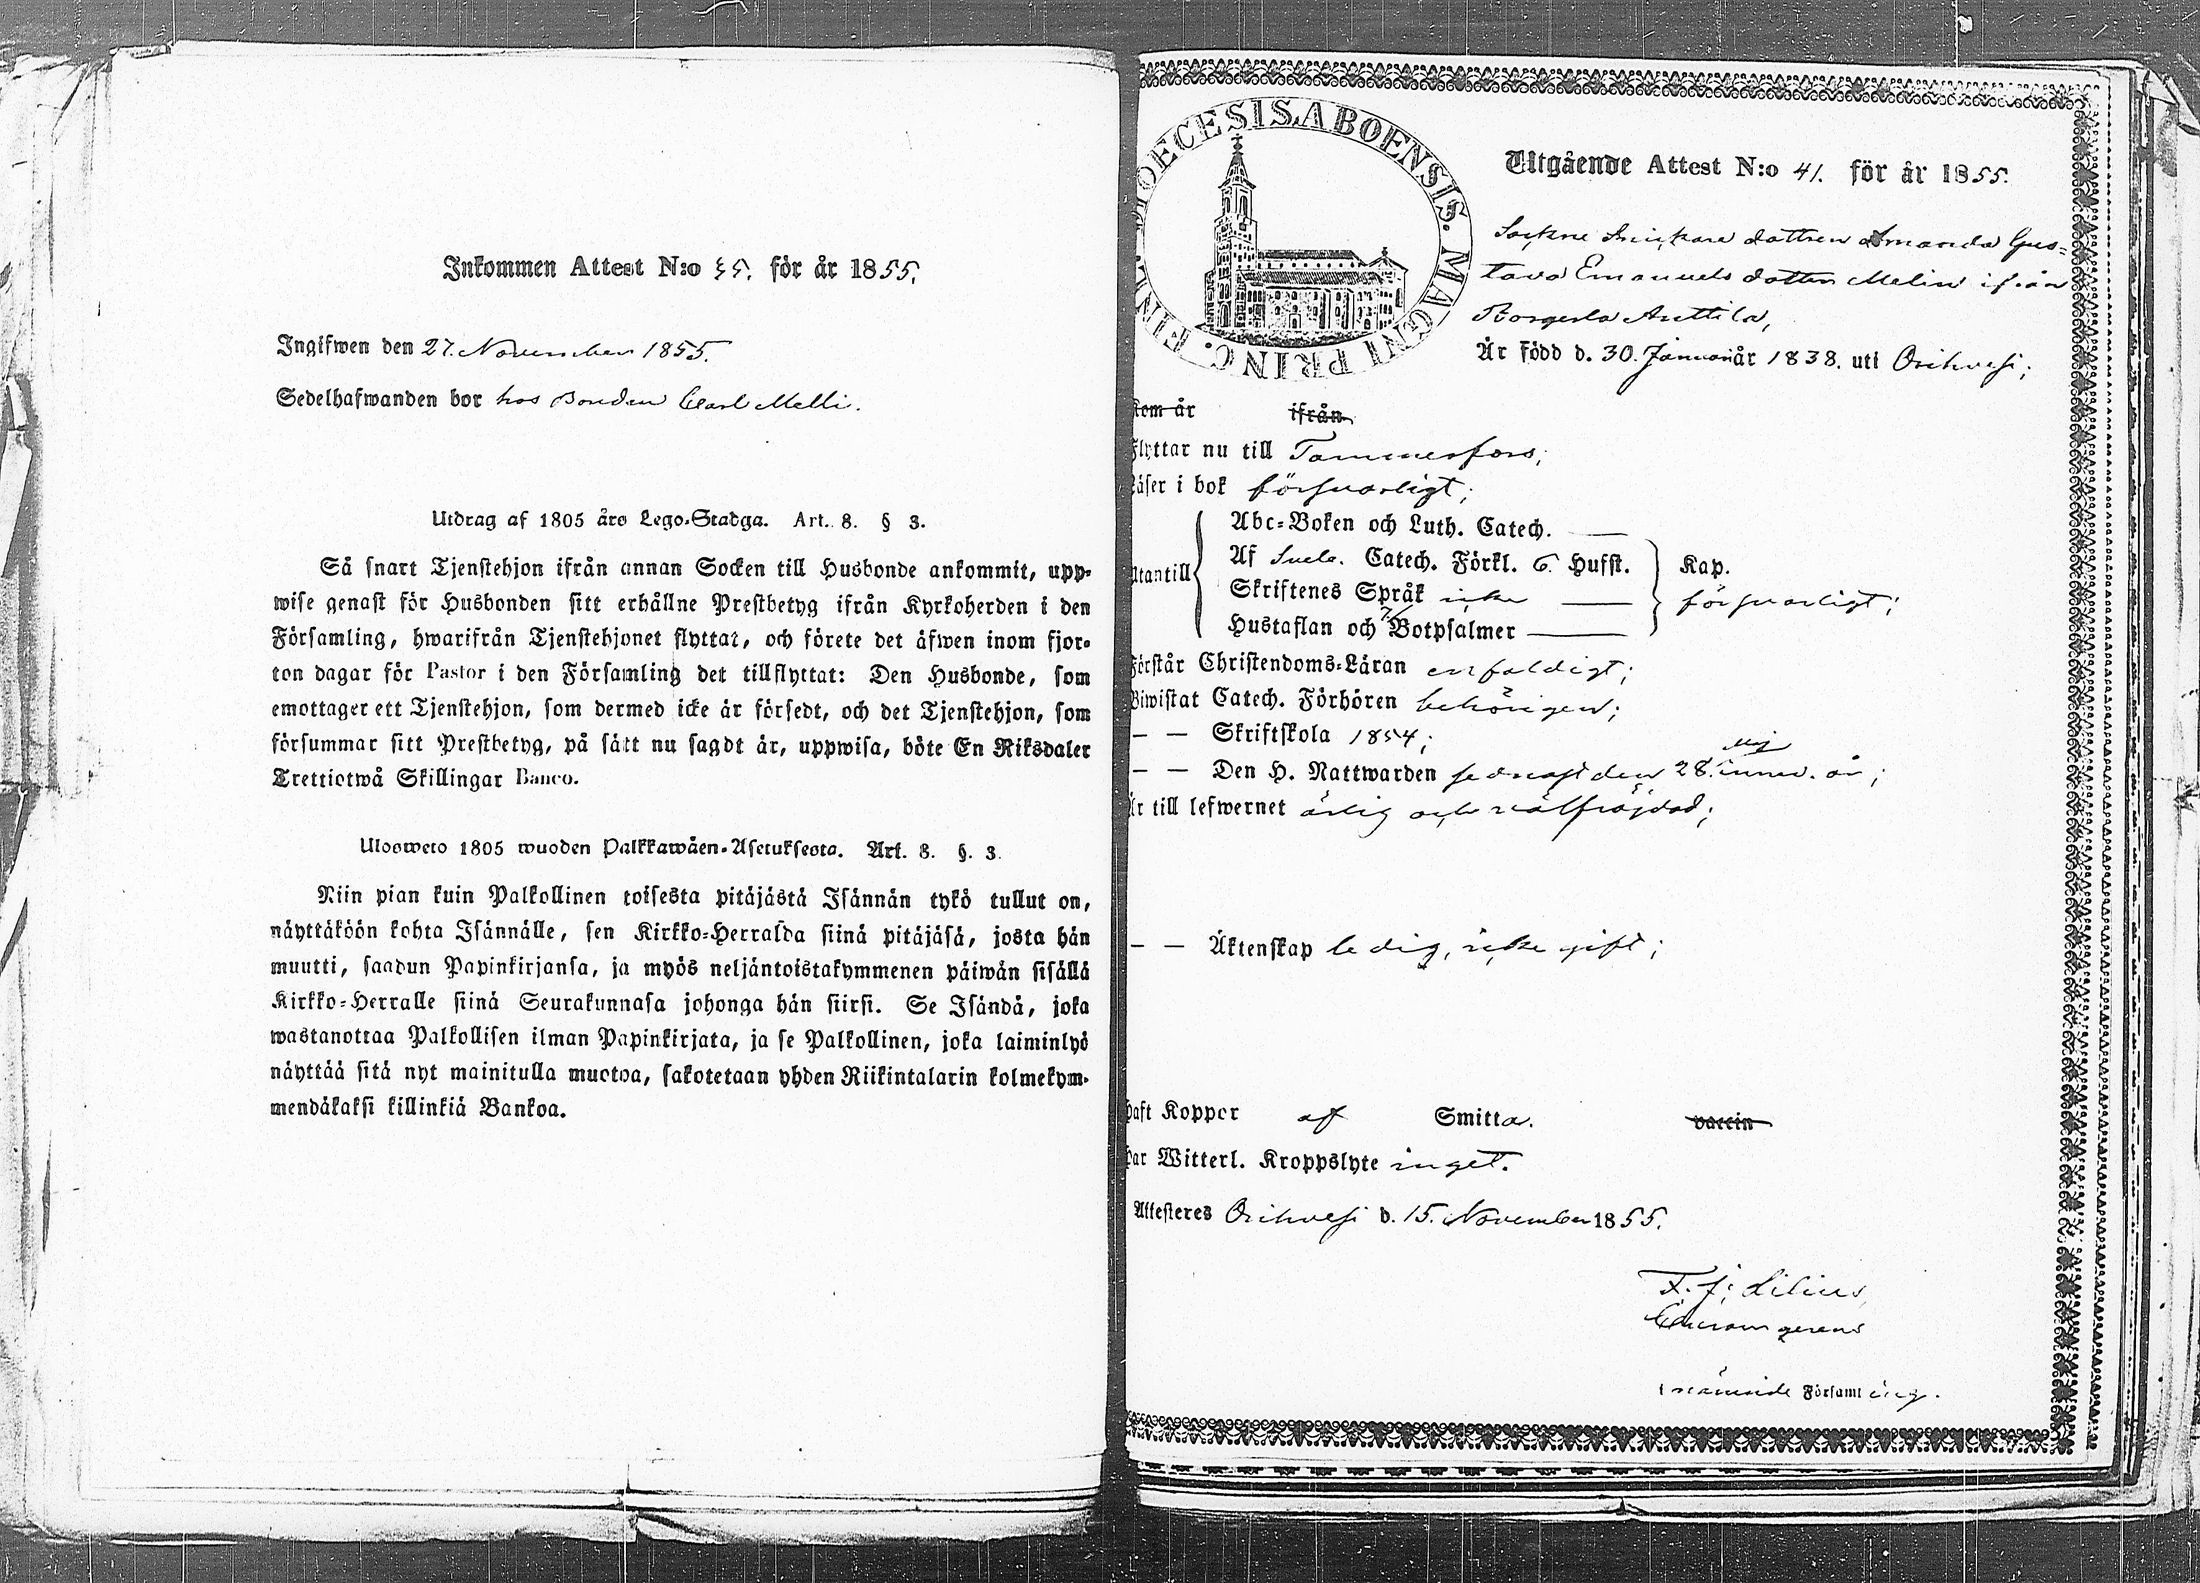 Inkommen Attest N:o 55. för år 1855.
Ingifwen den 27. November 1855.
Sedelhafwanden bor hos Bonden Carl Melli.
Utdrag af 1805 års Lego-Stadga. Art. 8. § 3.
Så snart Tjenstehjon ifrån annan Socken till Husbonde ankommit, upp-
wise genast för Husbonden sitt erhållne Prestbetyg ifrån Kyrkoherden i den
Församling, hwarifrån Tjenstehjonet flyttat, och förete det äfwen inom fjor-
ton dagar för Pastor i den Församling det tillflyttat: Den Husbonde, som
emottager ett Tjenstehjon, som dermed icke är försedt, och det Tjenstehjon, som
försummar sitt Prestbetyg, på sätt nu sagdt är, uppwisa, böte En Riksdaler
Trettiotwå Skillingar Banco.
Ulosweto 1805 wuoden Palkkawäen-Asetuksesta. Art. 8. §. 3.
Niin pian kuin Palkollinen toisesta pitäjästä Isännän tykö tullut on,
näyttäköön kohta Isännälle, sen Kirkko-Herralda siinä pitäjäsä, josta hän
muutti, saadun Papinkirjansa, ja myös neljäntoistakymmenen päiwän sisällä
Kirkko-Herralle siinä Seurakunnasa johonga hän siirsi. Se Isändä, joka
wastanottaa Palkollisen ilman Papinkirjata, ja se Palkollinen, joka laiminlyö
näyttää sitä nyt mainitulla muotoa, sakotetaan yhden Riikintalarin kolmekym-
mendäkaksi killinkiä Bankoa.
DIOECESIS ABOENSIS. MAGNI PRINC. FINL.
Utgående Attest N:o 41. för år 1855.
Sockne Snickare dottren Amanda Gus-
tava Emanuels dotter Melin ifrån
Anttila,
Är född d. 30. Januari år 1838. uti Orihvesi;
Kom år ifrån
Flyttar nu till Tammerfors;
Läser i bok försvarligt;
Utantill
Abc-Boken och Luth. Catech. —
Af Sveb. Catech. Förkl. 6. Hufst.
Skriftenes Språk icke —
Hustaflan och 7/ Botpsalmer —
Kap.
försvarligt;
Förstår Christendoms-Läran enfaldigt;
Biwistat Catech. Förhören behörigen;
— — Skriftskola 1854;
— — Den H. Nattwarden sednast den 28. Maj innev. år;
Är till lefwernet ärlig och välfräjdad;
— — Äktenskap ledig, icke gift;
Haft Koppor af Smitta. vaccin
Har Witterl. Kroppslyte inget.
Attesteres Orihvesi d. 15. November 1855.
F. J. Lilius,
Curam gerens
i nämnde Församling.